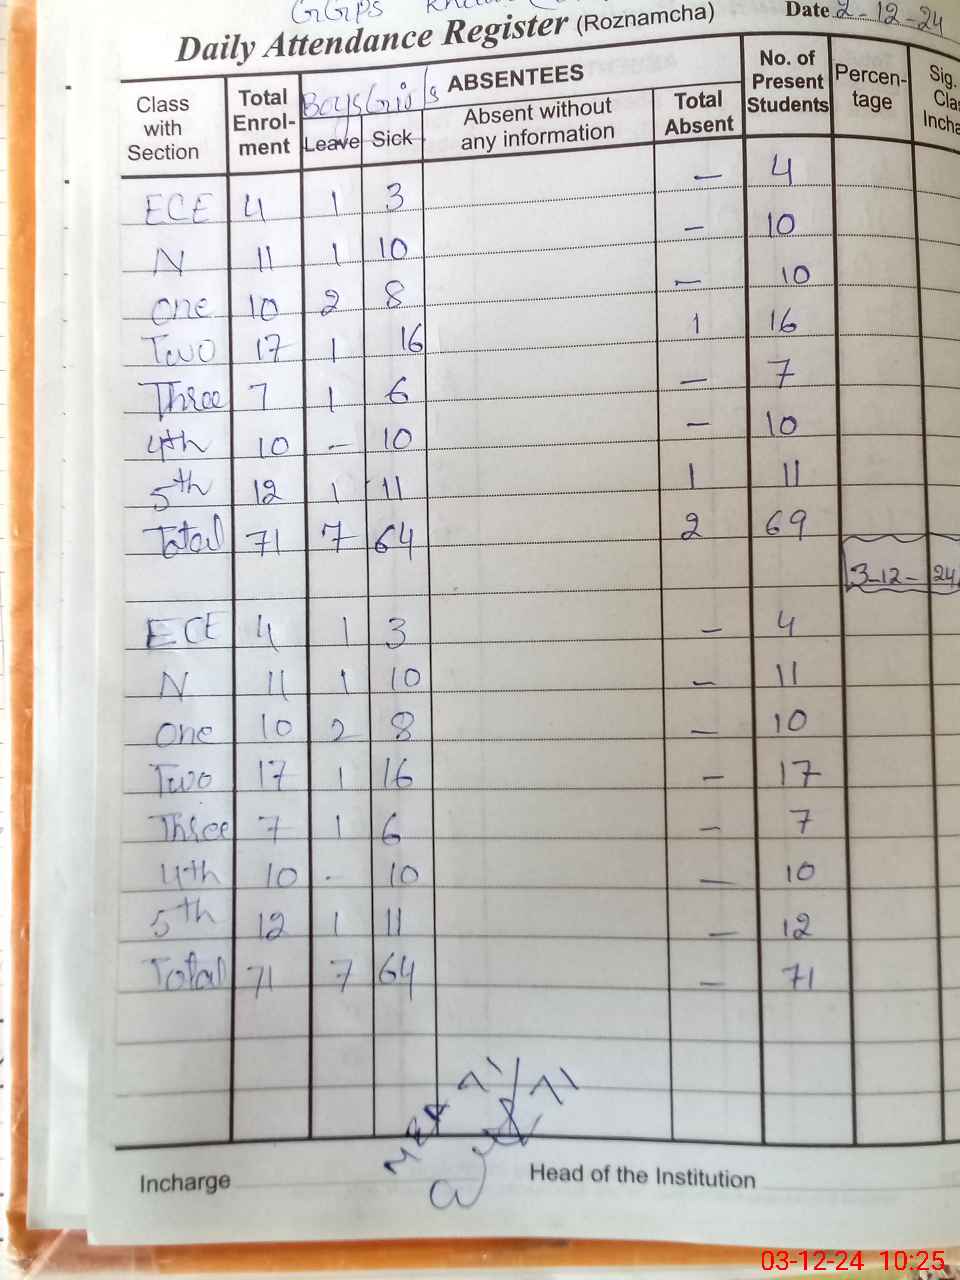 GGPS
Date 2-12-24
Daily Attendance Register (Roznamcha)
Class with Section | Total Enrol-ment | Boys Girls | ABSENTEES | No. of Present Students | Percen-tage | Sig. Cla Incha
Leave | Sick | Absent without any information | Total Absent
ECE 4 1 3 — 4
N 11 1 10 — 10
One 10 2 8 — 10
Two 17 1 16 1 16
Three 7 1 6 — 7
4th 10 — 10 — 10
5th 12 1 11 1 11
Total 71 7 64 2 69
3-12-24
ECE 4 1 3 — 4
N 11 1 10 — 11
One 10 2 8 — 10
Two 17 1 16 — 17
Three 7 1 6 — 7
4th 10 - 10 — 10
5th 12 1 11 — 12
Total 71 7 64 — 71
MEA 71/71
Incharge
Head of the Institution
03-12-24 10:25